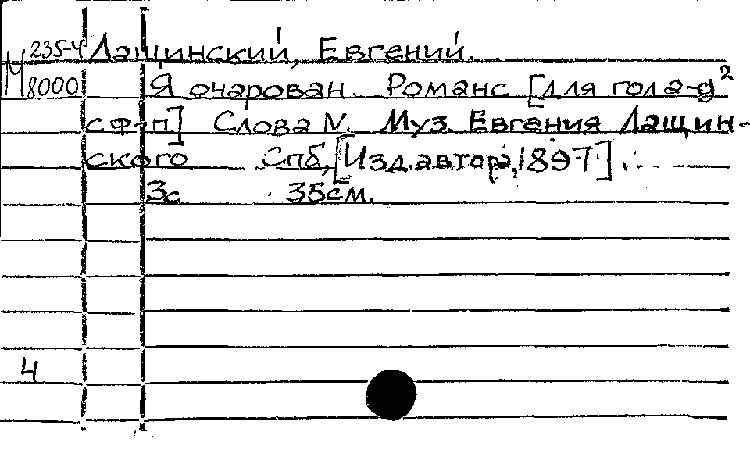 М 235-4 Лащинский, Евгений.
8000 Я очарован. Романс [для гола-д²
с ф-п] Слова N. Муз. Евгения Лащин-
ского Спб, [Изд. автора, 1897].
3с 35см.
4